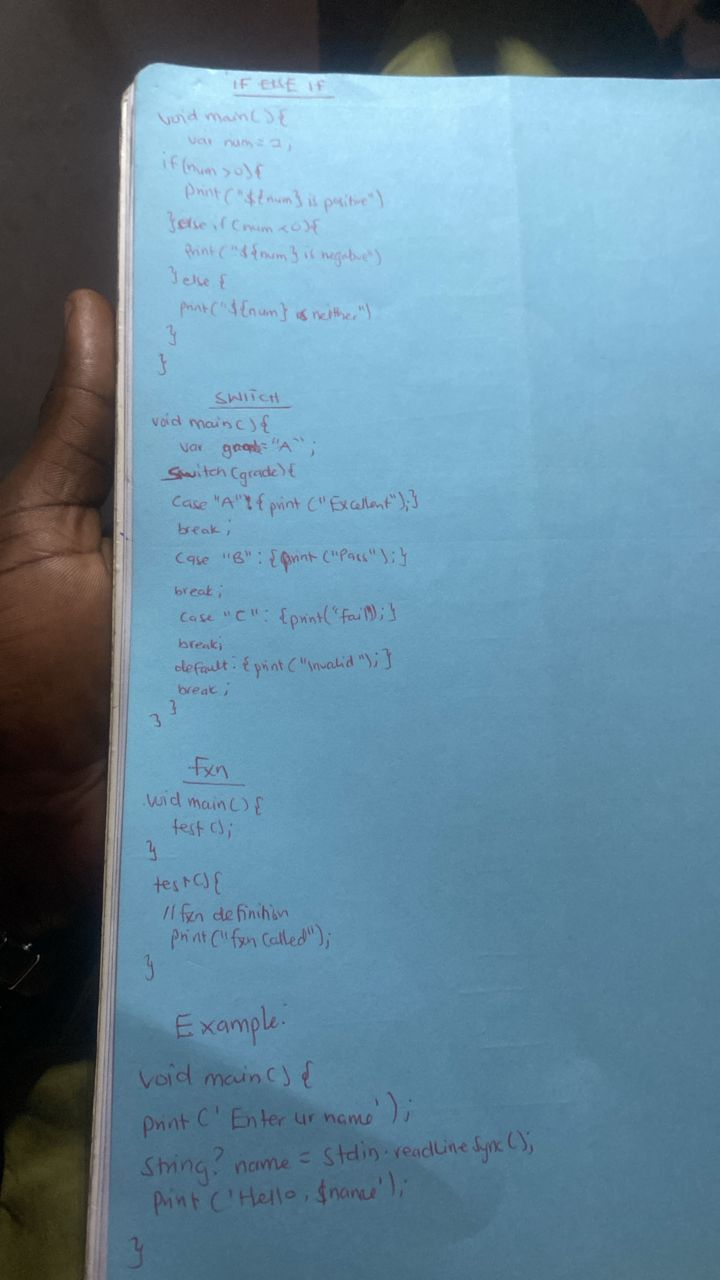 IF ELSE IF
void main() {
var num = 2;
if (num > 0) {
print ("${num} is positive")
} else if (num < 0) {
print ("${num} is negative")
} else {
print ("${num} is neither")
}
}
SWITCH
void main() {
var = "A";
Switch (grade) {
Case "A": { print ("Excellent"); }
break;
Case "B": { print ("Pass"); }
break;
Case "C": { print ("fail"); }
break;
default: { print ("Invalid"); }
break;
}
}
fxn
void main() {
test ();
}
test () {
// fxn definition
print ("fxn called");
}
Example:
void main() {
print ('Enter ur name');
String? name = stdin.readLineSync();
Print ('Hello, $name');
}